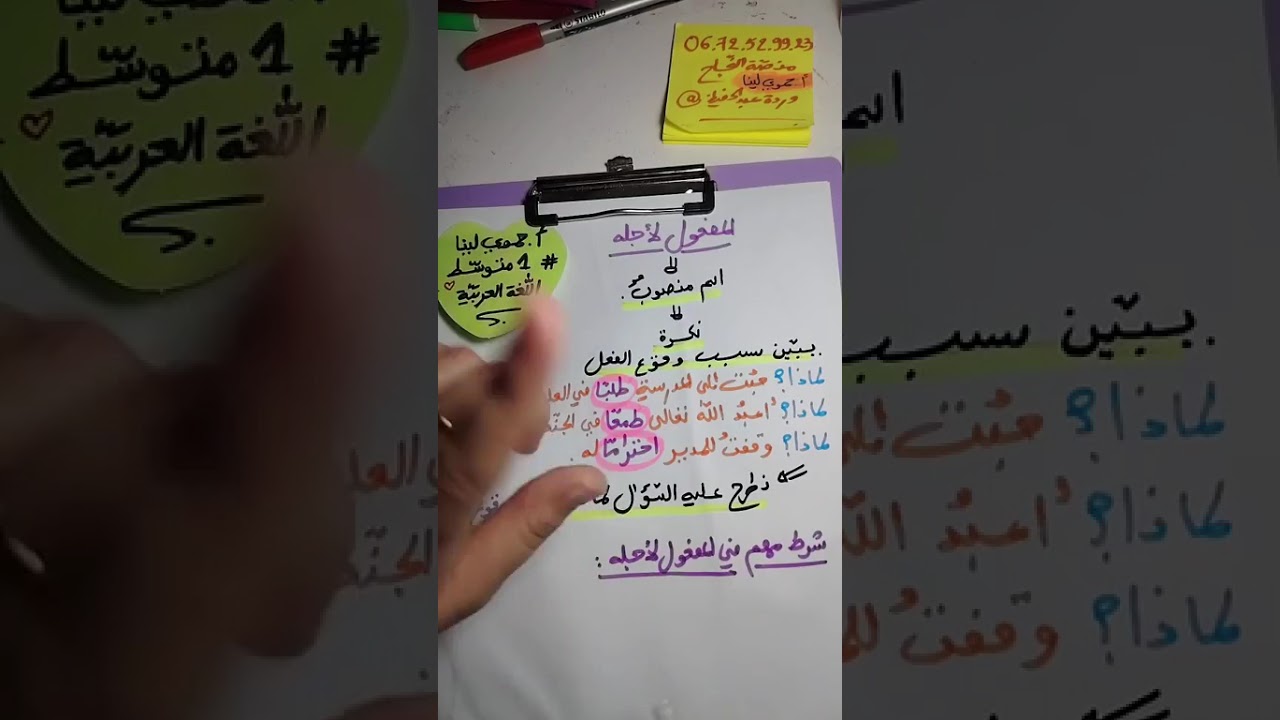 06.72.52.99.23
منصّة النّجاح
أ حموي لينا
وردة عبد الحفيظ @
أ. حموي لينا
# 1 متوسّط
اللّغة العربيّة
المفعول لأجله
اسم منصوبٌ.
نكرة
. يبيّن سبب وقوع الفعل
لماذا؟ جئت إلى المدرسة طلبًا في العلم
لماذا؟ أعبدُ اللّه تعالى طمعًا في الجنّة
لماذا؟ وقفتُ للمدير احترامًا له.
نطرح عليه السّؤال لماذا
شرط مهم في المفعول لأجله :